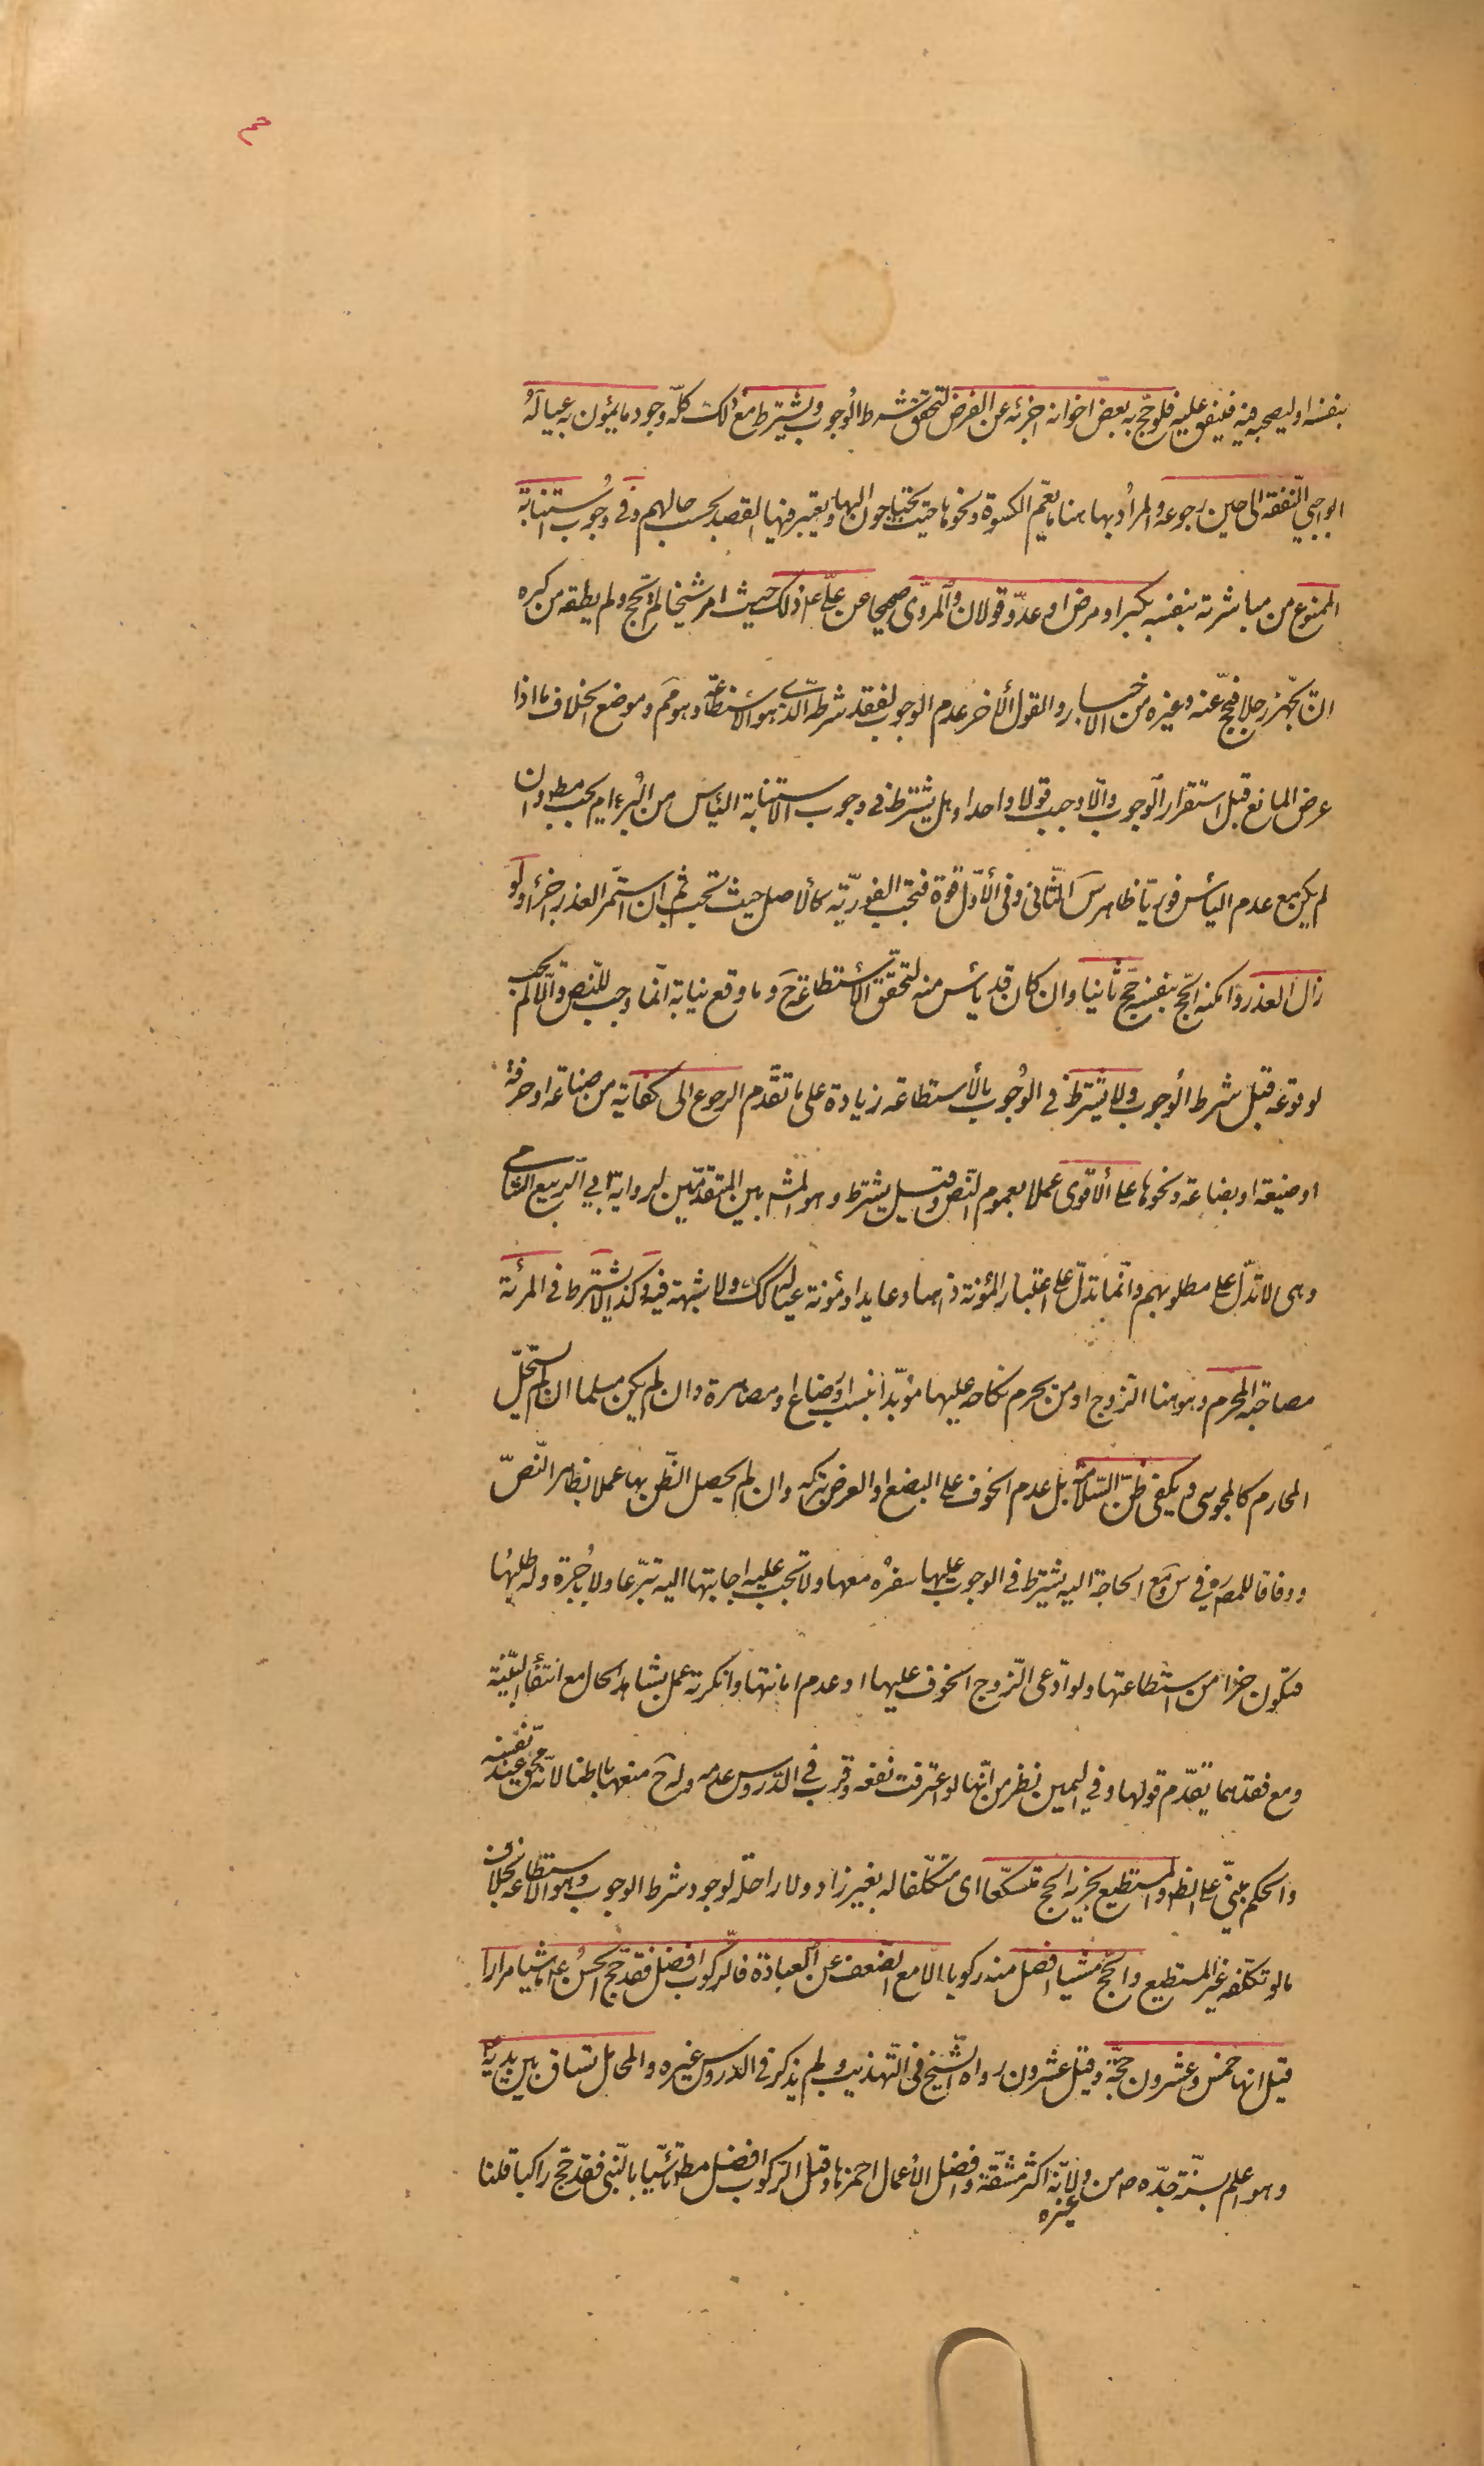 بنفسه او ليصحبه فيه فينفق عليه فلو حجّ به بعض اخوانه اجزئه عن الفرض لتحقّق شرط الوجوب ويشترط مع ذلك كلّه وجود ما يمون به عياله
الواجبي النّفقة الى حين رجوعه والمراد بها هنا ما يعمّ الكسوة ونحوها حيث يحتاجون اليها ويعتبر فيها القصد بحسب حالهم وفى وجوب استنابة
الممنوع من مباشرته بنفسه بكبر او مرض او عدوّ قولان والمروّى صحيحا عن علىّ ع ذلك حيث امر شيخا لم يحجّ ولم يطقه من كبره
ان يجهّز رجلا فيحجّ عنه وغيره من الاخبار والقول الأخر عدم الوجوب لفقد شرطه الّذى هو الاستطاعة وهو مم وموضع الخلاف ما اذا
عرض المانع قبل استقرار الوجوب والّا وجب قولا واحدا وهل يشترط فى وجوب الاستنابة الياس من البرء ام يجب مط وان
لم يكن مع عدم الياس فوريّا ظاهر س الثّانى وفى الأوّل قوّة فتجب الفوريّة كالأصل حيث تجب ثم ان استمّر العذر اجزء ولو
زال العذر وامكنه الحجّ بنفسه حجّ ثانيا وان كان قد يأس منه لتحقّق الأستطاعة ح وما وقع نيابة انّما وجب للنّص والّا لم يجب
لوقوعه قبل شرط الوجوب ولا يشترط فى الوجوب بالأستطاعة زيادة على ما تقدّم الرجوع الى كفاية من صناعة او حرفة
او ضيعة او بضاعة ونحوها على الاقوى عملا بعموم النّص وقيل يشترط وهو المشه بين المتقدّمين لرواية ابي الرّبيع الشّامى
وهى لا تدلّ على مطلوبهم وانّما تدلّ على اعتبار المؤنة ذاهبا وعايدا ومؤنة عياله كك ولا شبهة فيه وكذا لا يشترط فى المرئة
مصاحبة المحرم وهو هنا الزّوج او من يحرم نكاحه عليها مؤبّدا بنسب او رضاع او مصاهرة وان لم يكن مسلما ان لم يستحلّ
المحارم كالمجوسى ويكفى ظنّ السّلامة بل عدم الخوف على البضع او العرض بتركه وان لم يحصل الظّن بها عملا بظاهر النّصّ
ووفاقا للمص ره فى س ومع الحاجة اليه يشترط فى الوجوب عليها سفره معها ولا تجب عليه اجابتها اليه تبرّعا ولا باجرة وله طلبها
فتكون جزءا من استطاعتها ولو ادّعى الزّوج الخوف عليها او عدم امانتها وانكرته عمل بشاهد الحال مع انتفاء البيّنة
ومع فقدهما يقدّم قولها وفي اليمين نظر من انّها لو اعترفت نفعه وقرب فى الدّروس عدمه وله ح منعها باطنا لانّه محقّ عند نفسه
والحكم مبنىّ على الظ والمستطيع يجزيه الحج متسكّعا اى متكلّفا له بغير زاد ولا راحلة لوجود شرط الوجوب وهو الاستطاعة بخلاف
ما لو تكلّفه غير المستطيع والحجّ مشيا افضل منه ركوبا الا مع الضعف عن العبادة فالرّكوب افضل فقد حجّ الحسن ع ماشيا مرارا
قيل انها خمس وعشرون حجّة وقيل عشرون رواه الشّيخ فى التّهذيب ولم يذكر فى الدّروس غيره والمحامل تساق بين يديه
وهو اعلم بسنّة جدّه ص من غيره ولانّه اكثر مشقّة وافضل الأعمال احمزها وقيل الرّكوب افضل مط تأسّيا بالنّبى فقد حجّ راكبا قلنا